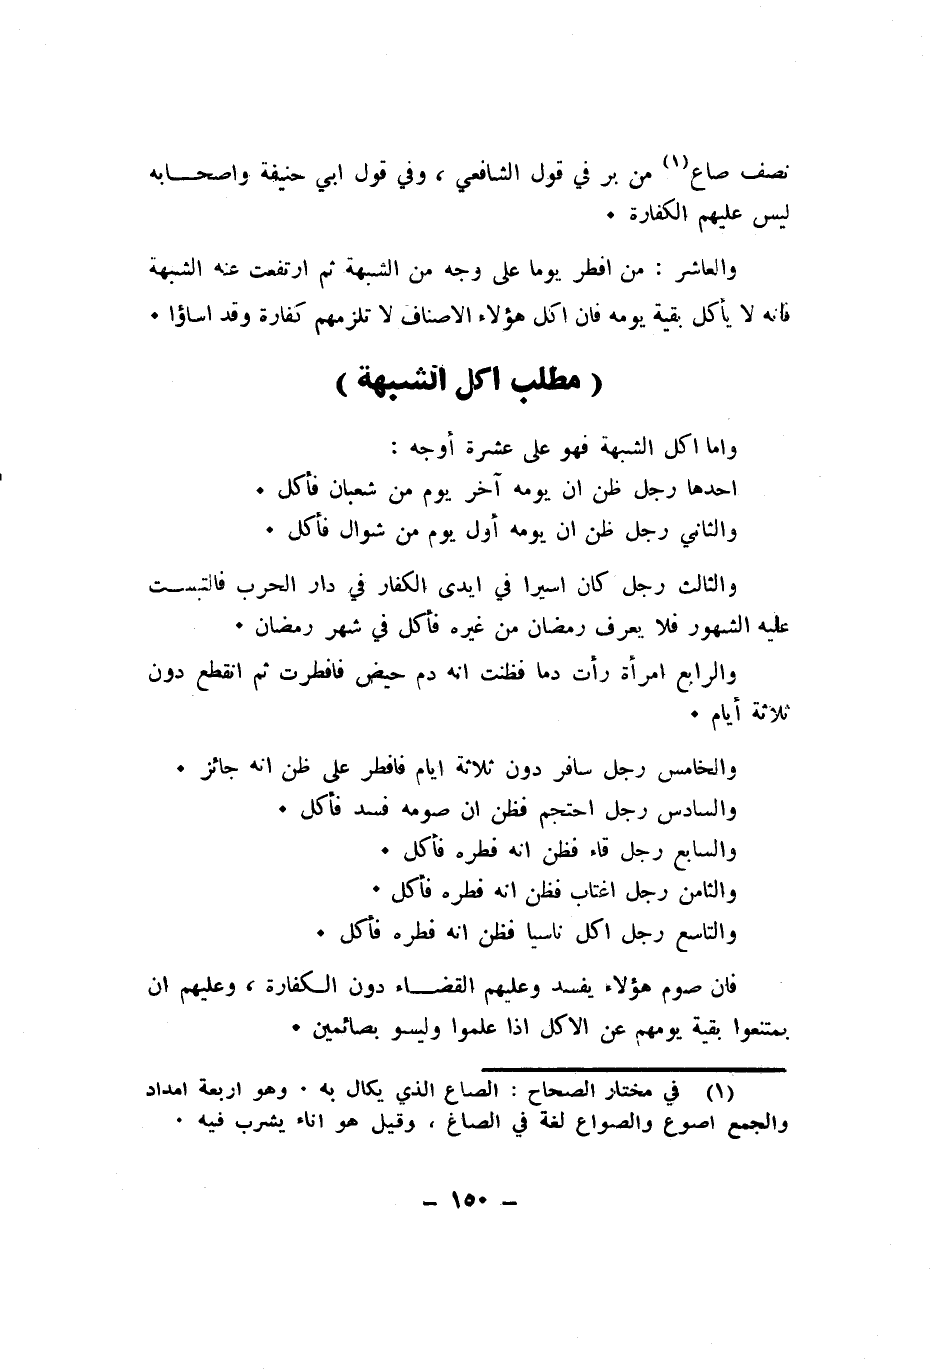 نصف صاع(١) من بر في قول الشافعي ، وفي قول ابي حنيفة واصحـــابه
ليس عليهم الكفارة ٠
والعاشر : من افطر يوما على وجه من الشبهة ثم ارتفعت عنه الشبهة
فانه لا يأكل بقية يومه فان اكل هؤلاء الاصناف لا تلزمهم كفارة وقد اساؤا ٠
( مطلب اكل الشبهة )
واما اكل الشبهة فهو على عشرة أوجه :
احدها رجل ظن ان يومه آخر يوم من شعبان فأكل ٠
والثاني رجل ظن ان يومه أول يوم من شوال فأكل ٠
والثالث رجل كان اسيرا في ايدى الكفار في دار الحرب فالتبســت
عليه الشهور فلا يعرف رمضان من غيره فأكل في شهر رمضان ٠
والرابع امرأة رأت دما فظنت انه دم حيض فافطرت ثم انقطع دون
ثلاثة أيام ٠
والخامس رجل سافر دون ثلاثة ايام فافطر على ظن انه جائز ٠
والسادس رجل احتجم فظن ان صومه فسد فأكل ٠
والسابع رجل قاء فظن انه فطره فأكل ٠
والثامن رجل اغتاب فظن انه فطره فأكل ٠
والتاسع رجل اكل ناسيا فظن انه فطره فأكل ٠
فان صوم هؤلاء يفسد وعليهم القضــاء دون الـكفارة ، وعليهم ان
يمتنعوا بقية يومهم عن الاكل اذا علموا وليسو بصائمين ٠
(١) في مختار الصحاح : الصاع الذي يكال به ٠ وهو اربعة امداد
والجمع اصوع والصواع لغة في الصاغ ، وقيل هو اناء يشرب فيه ٠
- ١٥٠ -